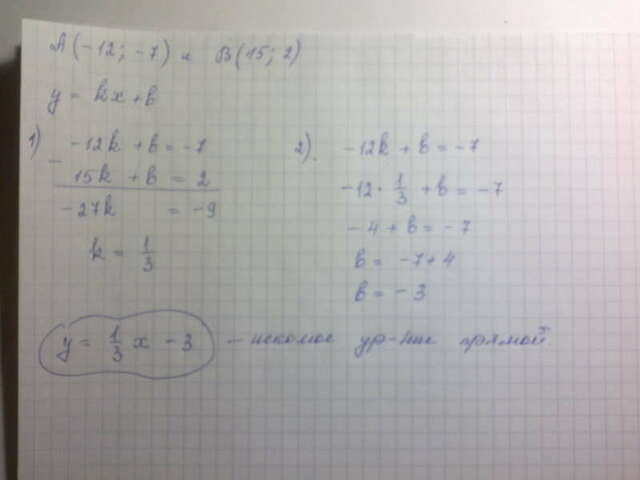 A(-12; -7) и B(15; 2)
y = kx + b
1) -12k + b = -7
- 15k + b = 2
-27k = -9
k = 1/3
2). -12k + b = -7
-12 · 1/3 + b = -7
-4 + b = -7
b = -7 + 4
b = -3
y = 1/3 x - 3 - искомое ур-ние прямой